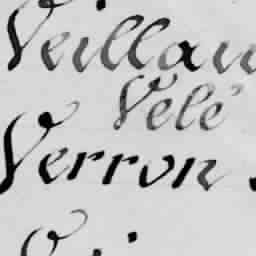 Veillau
Velé
Verron